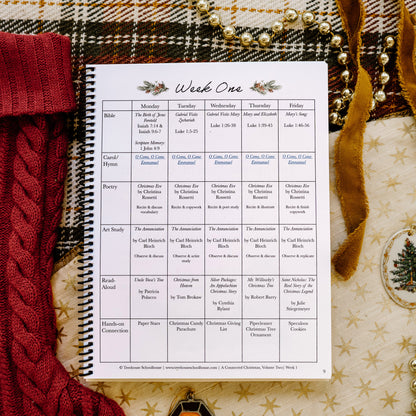 Week One
Monday Tuesday Wednesday Thursday Friday
Bible
The Birth of Jesus
Foretold
Isaiah 7:14 &
Isaiah 9:6-7
Scripture Memory:
1 John 4:9
Gabriel Visits
Zechariah
Luke 1:5-25
Gabriel Visits Mary
Luke 1:26-38
Mary and Elizabeth
Luke 1:39-45
Mary's Song
Luke 1:46-56
Carol/
Hymn
O Come, O Come
Emmanuel
O Come, O Come
Emmanuel
O Come, O Come
Emmanuel
O Come, O Come
Emmanuel
O Come, O Come
Emmanuel
Poetry
Christmas Eve
by Christina
Rossetti
Recite & discuss
vocabulary
Christmas Eve
by Christina
Rossetti
Recite & copywork
Christmas Eve
by Christina
Rossetti
Recite & poet study
Christmas Eve
by Christina
Rossetti
Recite & illustrate
Christmas Eve
by Christina
Rossetti
Recite & finish
copywork
Art Study
The Annunciation
by Carl Heinrich
Bloch
Observe & discuss
The Annunciation
by Carl Heinrich
Bloch
Observe & artist
study
The Annunciation
by Carl Heinrich
Bloch
Observe & discuss
The Annunciation
by Carl Heinrich
Bloch
Observe & discuss
The Annunciation
by Carl Heinrich
Bloch
Observe & replicate
Read-
Aloud
Uncle Vova's Tree
by Patricia
Polacco
Christmas from
Heaven
by Tom Brokaw
Silver Packages:
An Appalachian
Christmas Story
by Cynthia
Rylant
Mr. Willowby's
Christmas Tree
by Robert Barry
Saint Nicholas: The
Real Story of the
Christmas Legend
by Julie
Stiegemeyer
Hands-on
Connection
Paper Stars
Christmas Candy
Parachute
Christmas Giving
List
Pipecleaner
Christmas Tree
Ornament
Speculoos
Cookies
© Treehouse Schoolhouse | www.treehouseschoolhouse.com | A Connected Christmas, Volume Two| Week 1
9